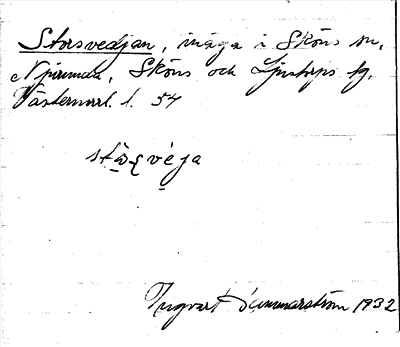 Storsvedjan, inäga i Sköns sn,
Njurunda, Sköns och Ljustorps tg.
Västernorrl. l. 54
Ingvart Dammarström 1932